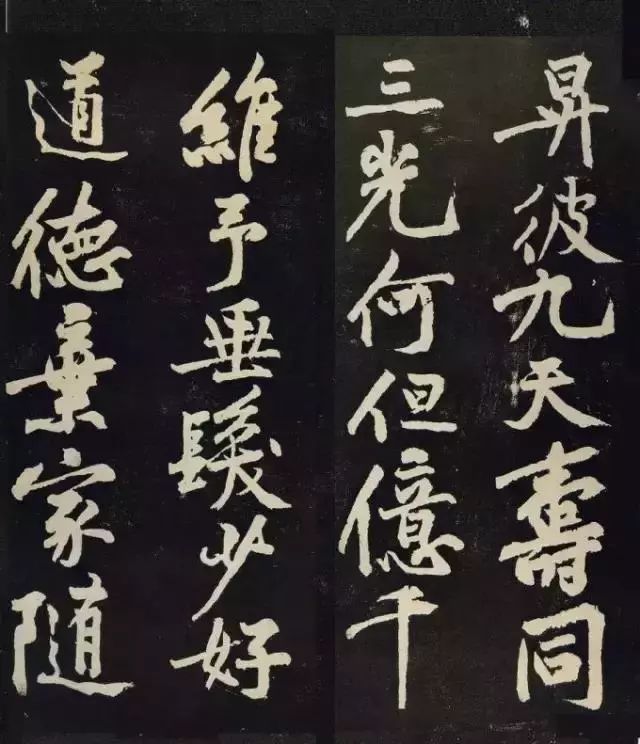 昇彼九天壽同
三光何但億千
維予垂髮少好
道德棄家隨